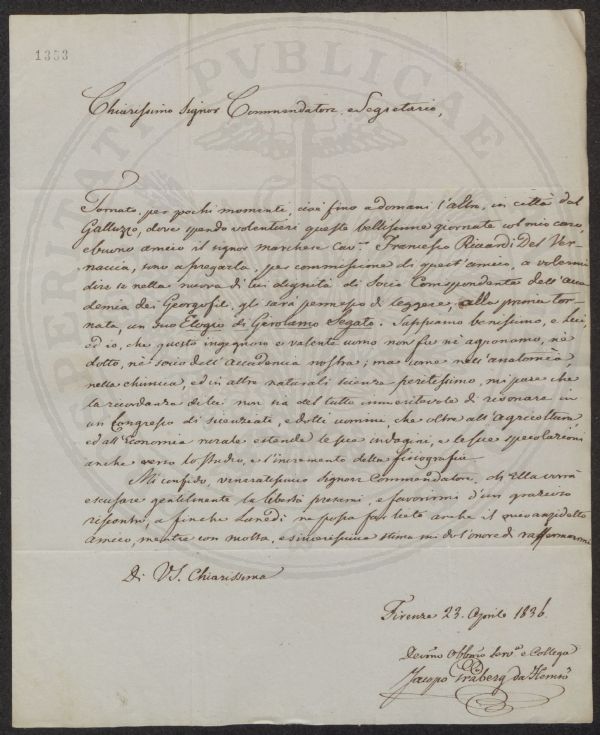 1353
PROSPERITATI PUBLICAE
Chiarissimo Signor Commendatore, e Segretario,
Tornato per pochi momenti, cioè fino a domani l'altro, in città dal
Galluzzo, dove spendo volentieri queste bellissime giornate col mio caro,
e buono amico il signor marchese Cav.re Francesco Riccardi Del Ver-
naccia, sono a pregarla, per commissione di quest'amico, a volermi
dire se nella nuova di lui dignità di Socio Corrispondente dell'Acca-
demia dei Georgofili gli sarà permesso di leggere, alla prima tor-
nata, un suo Elogio di Girolamo Segato. Sappiamo benissimo, e Lei,
ed io, che questo ingegnoso e valente uomo non fu nè agronomo, nè
dotto, nè socio dell'Accademia nostra; ma come nell'anatomia,
nella chimica, ed in altre naturali scienze peritissimo, mi pare che
la ricordanza di lui non sia del tutto immeritevole di risonare in
un Congresso di scienziati, e dotti uomini, che oltre all'Agricoltura,
ed all'Economia rurale estende le sue indagini, e le sue speculazioni
anche verso lo studio, e l'incremento della fisiografia.
Mi confido, veneratissimo Signore Commendatore, ch'Ella vorrà
escusare gentilmente la libertà presami, e favorirmi d'un grazioso
riscontro, a finchè Lunedì ne possa far lieto anche il menzidetto
amico, mentre con molta, e sincerissima stima mi do l'onore di raffermarmi
Di V.S. Chiarissima
Firenze 23. Aprile 1836.
Devmo Obbmo Serv.e e Collega
Jacopo Gråberg da Hemsö